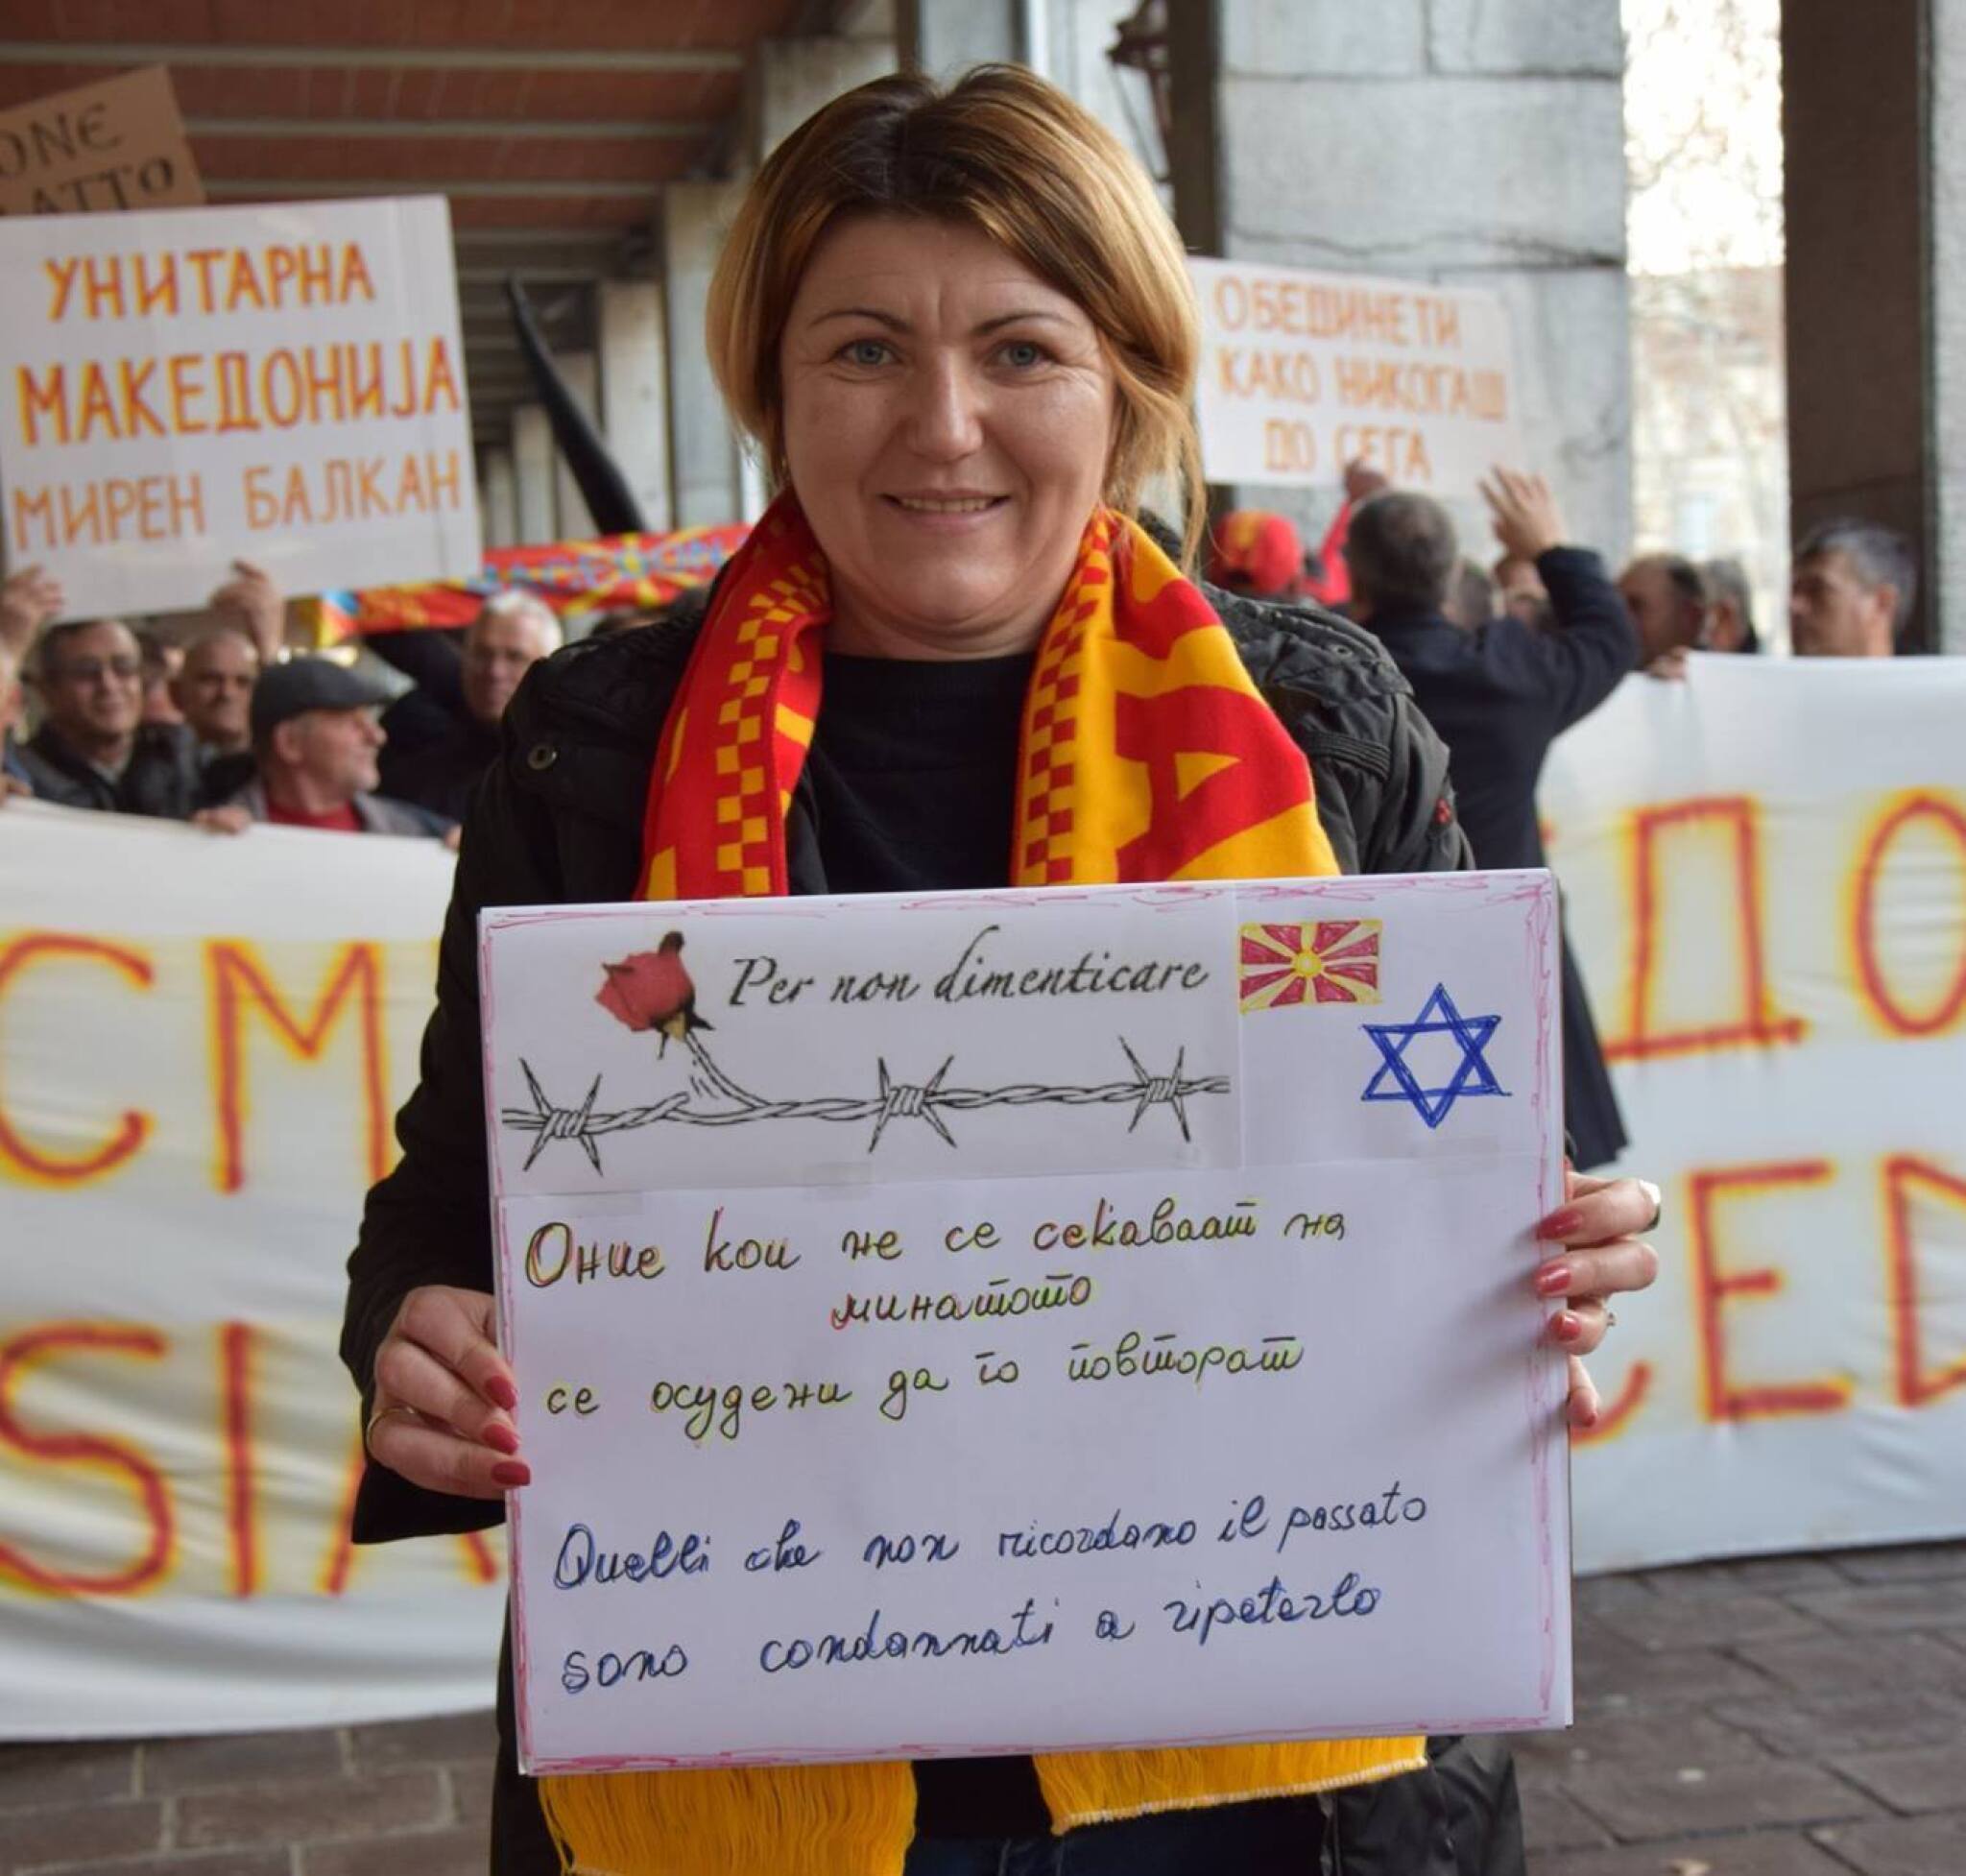 ONE
ATTO
УНИТАРНА
МАКЕДОНИЈА
МИРЕН БАЛКАН
ОБЕДИНЕТИ
КАКО НИКОГАШ
ДО СЕГА
СМ
SIA
ДО
CED
Per non dimenticare
Оние кои не се сеќаваат на
минатото
се осудени да го повторат
Quelli che non ricordano il passato
sono condannati a ripeterlo